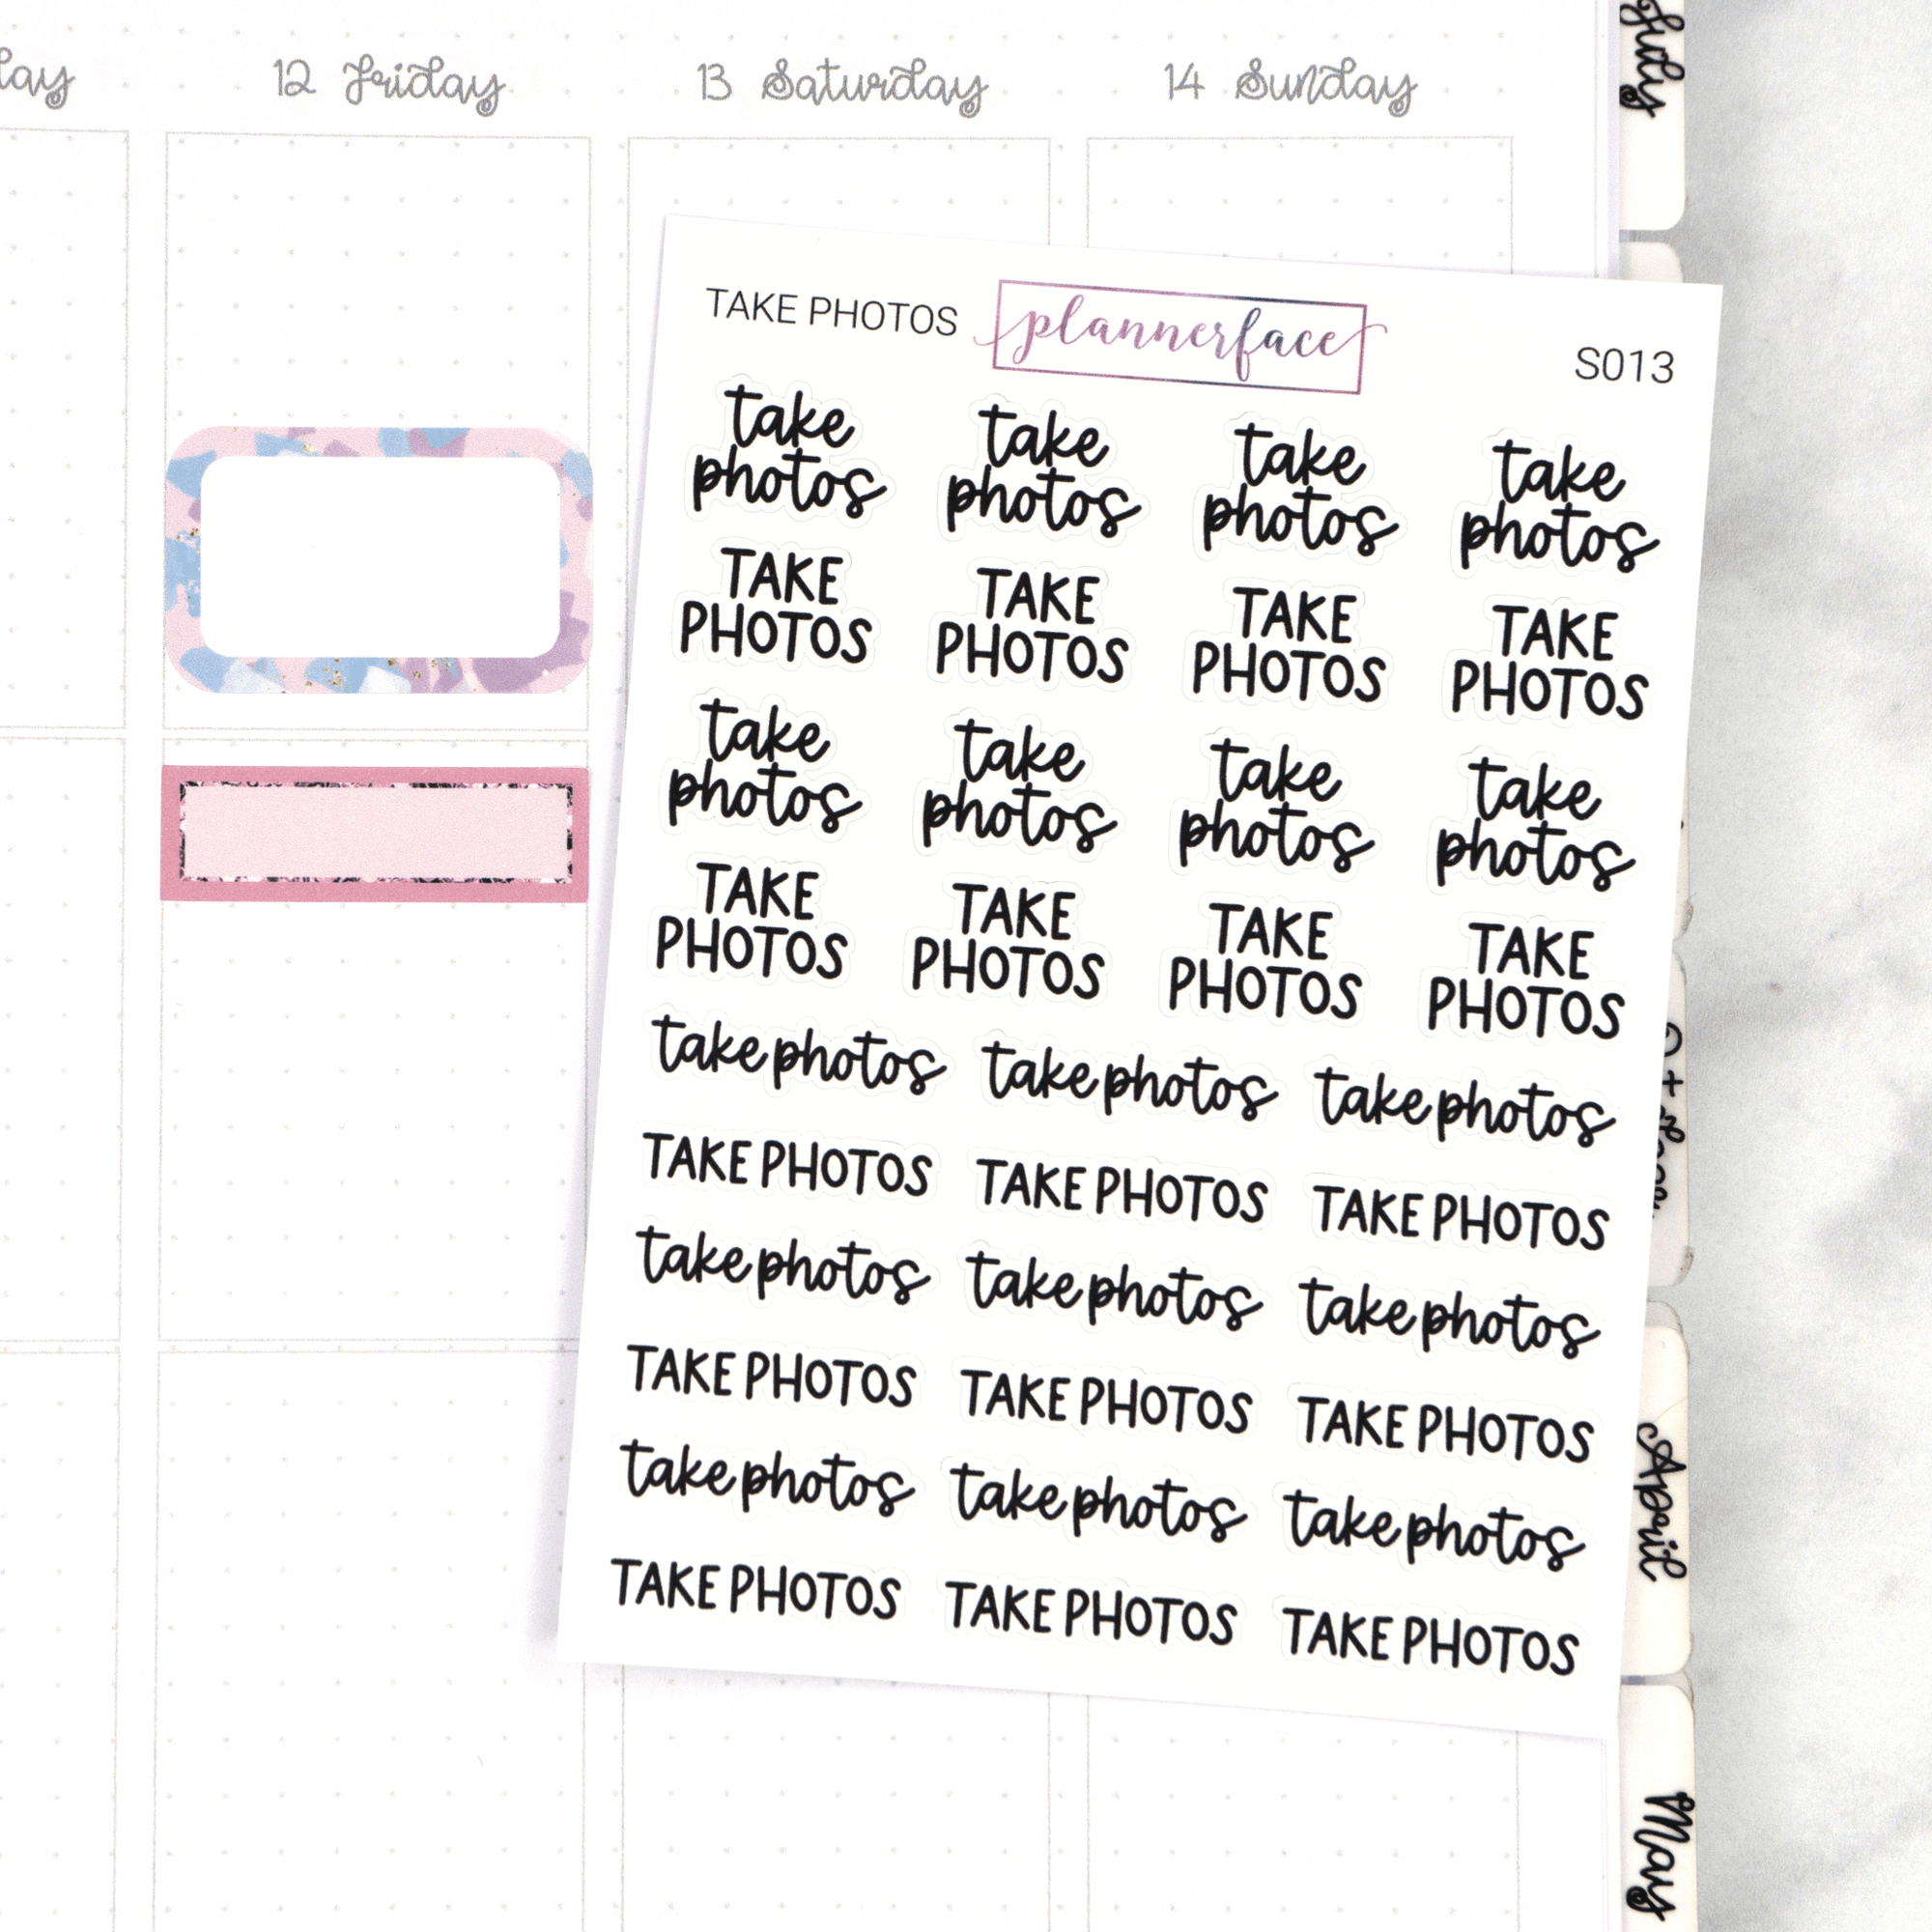 12 Friday 13 Saturday 14 Sunday
July
TAKE PHOTOS plannerface S013
take take take take
photos photos photos photos
TAKE TAKE TAKE TAKE
PHOTOS PHOTOS PHOTOS PHOTOS
take take take take
photos photos photos photos
TAKE TAKE TAKE TAKE
PHOTOS PHOTOS PHOTOS PHOTOS
take photos take photos take photos
TAKE PHOTOS TAKE PHOTOS TAKE PHOTOS
take photos take photos take photos
TAKE PHOTOS TAKE PHOTOS TAKE PHOTOS
take photos take photos take photos
TAKE PHOTOS TAKE PHOTOS TAKE PHOTOS
April
May